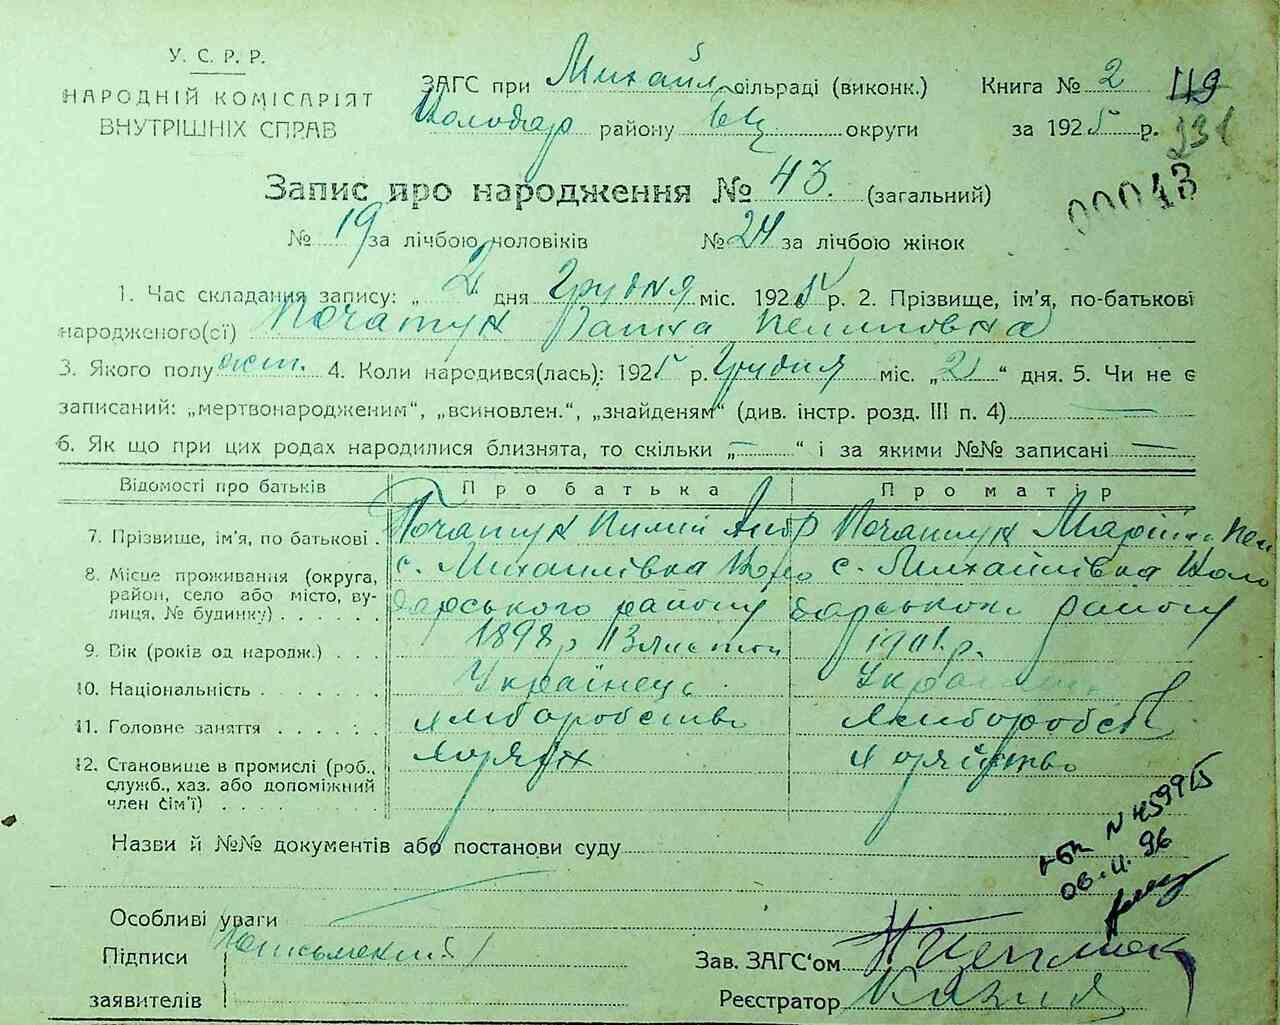 У. С. Р. Р.
НАРОДНІЙ КОМІСАРІЯТ
ВНУТРІШНІХ СПРАВ
ЗАГС при Михайл сільраді (виконк.)
Володар району БЦ округи
Книга № 2 119
за 1925 р. 231
00043
Запис про народження № 43. (загальний)
№ 19 за лічбою чоловіків № 24 за лічбою жінок
1. Час складання запису: „ 2 “ дня Грудня міс. 1925 р. 2. Прізвище, ім'я, по-батькові
народженого(сі) Початук
3. Якого полу жін. 4. Коли народився(лась): 1925 р. Грудня міс. „ 2 “ дня. 5. Чи не є
записаний: „мертвонародженим“, „всиновлен.“, „знайденям“ (див. інстр. розд. III п. 4)
6. Як що при цих родах народилися близнята, то скільки „ — “ і за якими №№ записані —
Відомості про батьків Про батька Про матір
7. Прізвище, ім'я, по батькові . Початук Початук
8. Місце проживання (округа, район, село або місто, вулиця, № будинку) . . . . . .
с. Михайлівка Воло с. Михайлівка Воло
дарського району дарського району
9. Вік (років од народж.) . . . 1898 р 1901 р.
10. Національність . . . . . . . Українець
11. Головне заняття . . . . . : хліборобство хлібороб
12. Становище в промислі (роб., служб., хаз. або допоміжний член сім'ї) . . . .
Назви й №№ документів або постанови суду
N 459915
06.11.96
Особливі уваги
Підписи
заявителів
Зав. ЗАГС'ом
Реєстратор